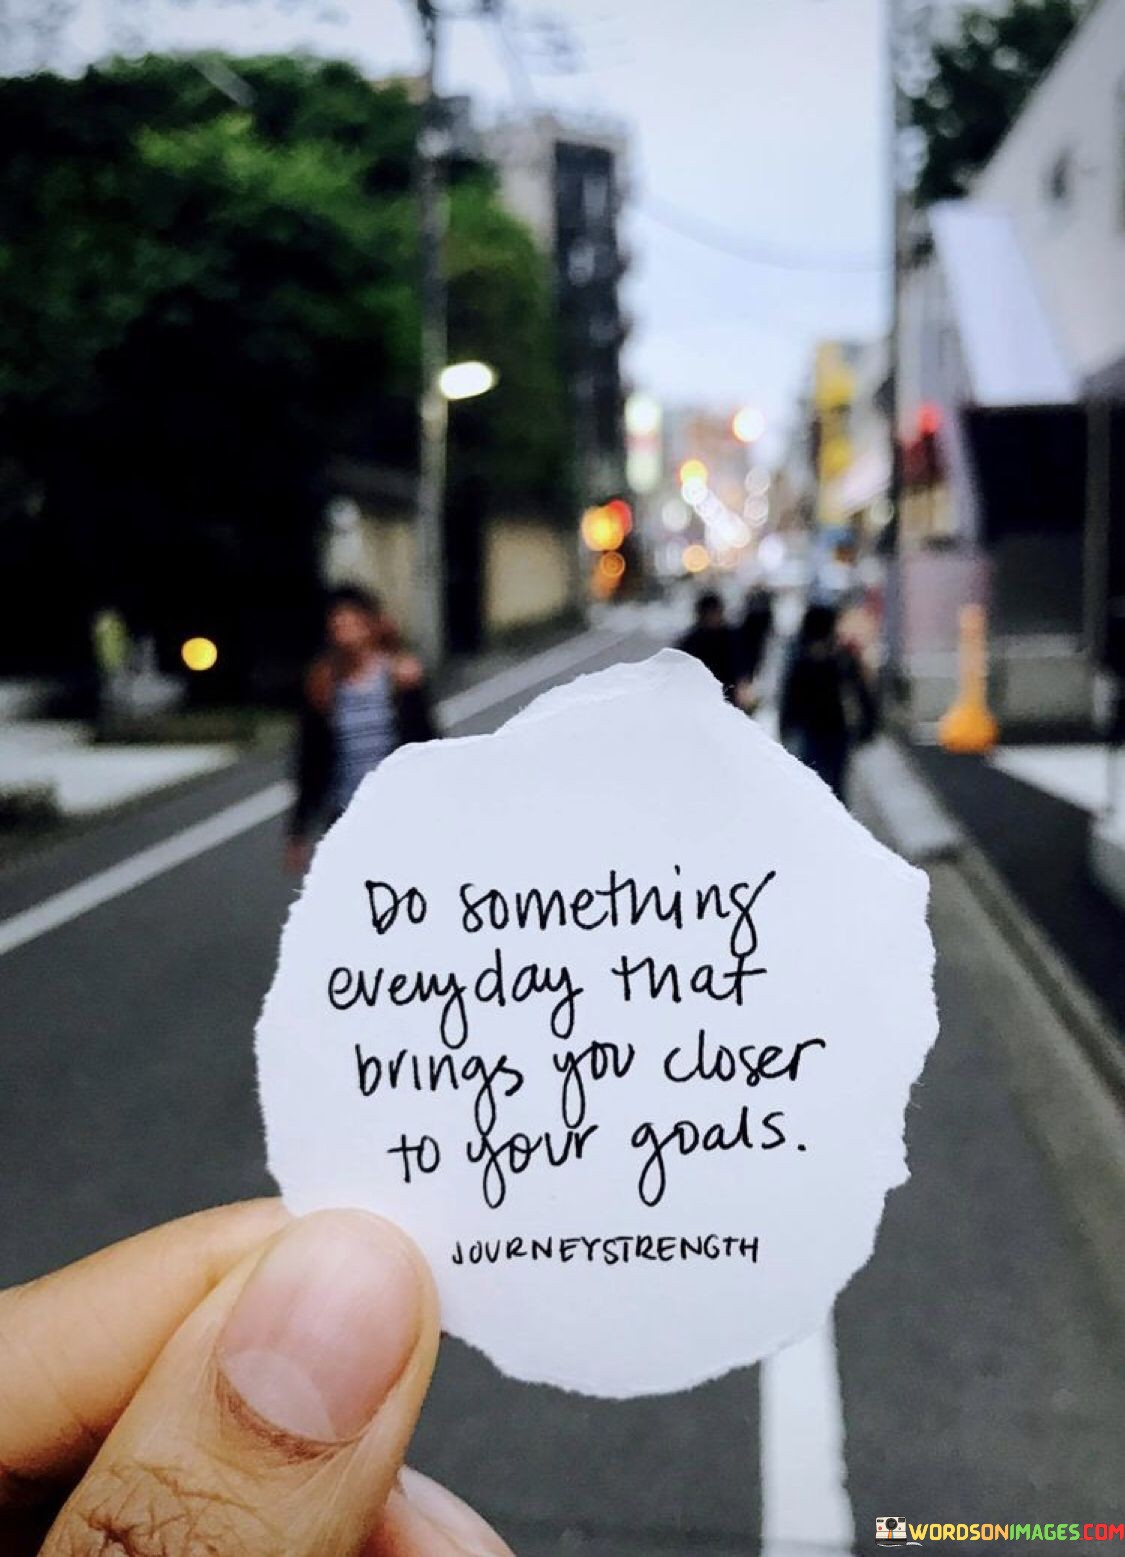 Do something
everyday that
brings you closer
to your goals.
JOURNEYSTRENGTH
WORDSONIMAGES.COM